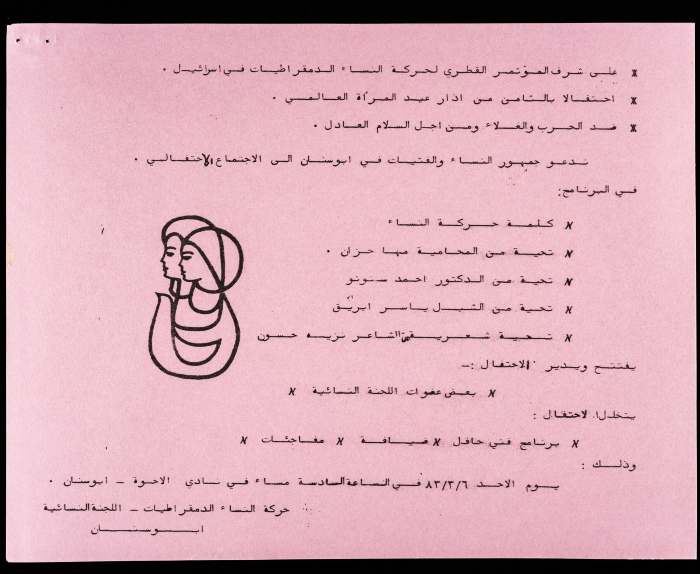 * على شرف المؤتمر القطري لحركة النساء الدمقراطيات في اسرائيل .
* احتفالا بالثامن من اذار عيد المرأة العالمي .
* ضد الحرب والغلاء ومن اجل السلام العادل .
ندعو جمهور النساء والفتيات في ابوسنان الى الاجتماع الاحتفالي .
في البرنامج:
* كلمة حركة النساء
* تحية من المحامية مها حزان .
* تحية من الدكتور احمد سنونو
* تحية من الشبل ياسر ابريق
* تحية شعرية من الشاعر نزيه حسون
يفتتح ويدير الاحتفال :-
* بعض عضوات اللجنة النسائية *
يتخلل الاحتفال :
* برنامج فني حافل * ضيافة * مفاجئات *
وذلك :
يوم الاحد ٨٣/٣/٦ في الساعة السادسة مساء في نادي الاخوة - ابوسنان .
حركة النساء الدمقراطيات - اللجنة النسائية
ابوسنان